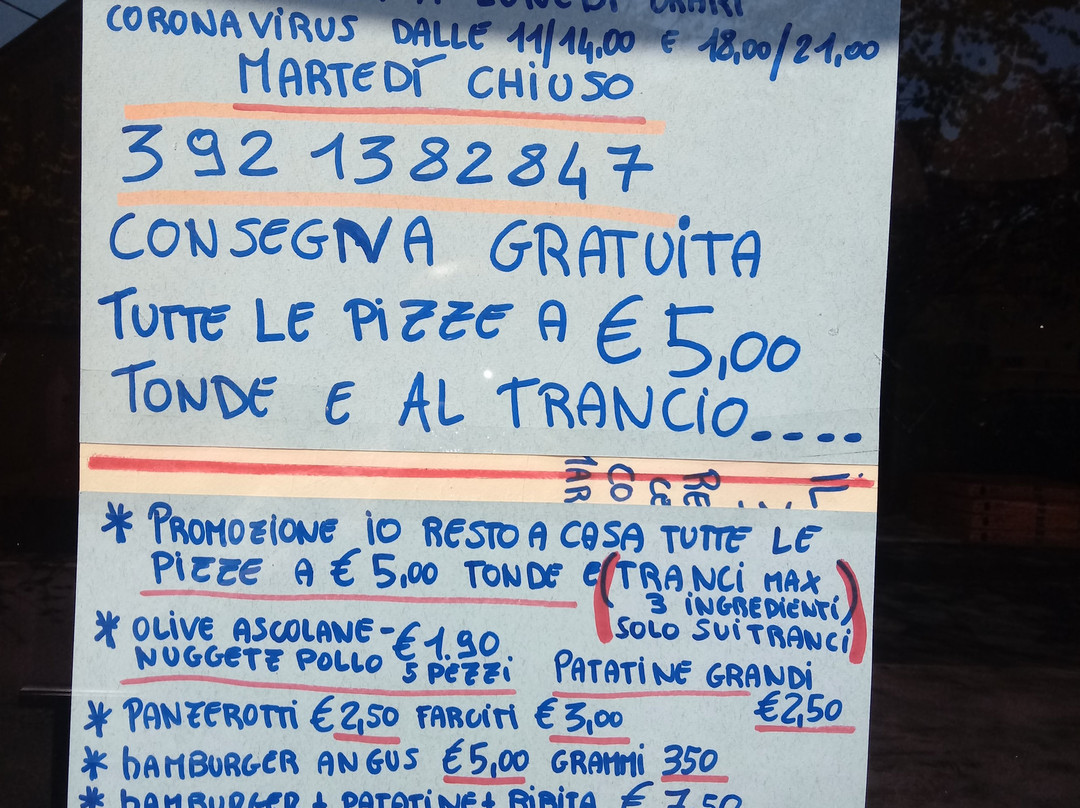 LUNEDI ORARI
CORONAVIRUS DALLE 11/14,00 E 18,00/21,00
MARTEDÌ CHIUSO
392 1382847
CONSEGNA GRATUITA
TUTTE LE PIZZE A € 5,00
TONDE E AL TRANCIO....
* PROMOZIONE IO RESTO A CASA TUTTE LE
PIZZE A € 5,00 TONDE E (TRANCI MAX
3 INGREDIENTI)
SOLO SUI TRANCI
* OLIVE ASCOLANE - € 1.90
NUGGETZ POLLO 5 PEZZI
PATATINE GRANDI
€2,50
* PANZEROTTI €2,50 FARCITI € 3,00
* HAMBURGER ANGUS €5,00 GRAMMI 350
* HAMBURGER + PATATINE + BIBITA € 7,50